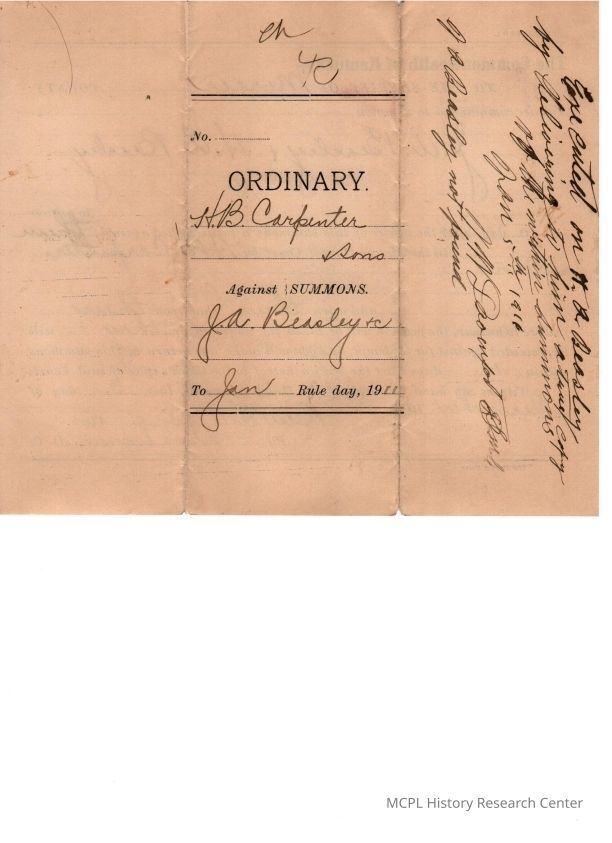 No.
ORDINARY.
H.B. Carpenter
& Sons
Against } SUMMONS.
J.A. Beasley &c
To Jan Rule day, 19
Executed on H. A Beasley
by delivering to him a true copy
of the within summons
Jan 5th 1910
J A Beasley not found
MCPL History Research Center